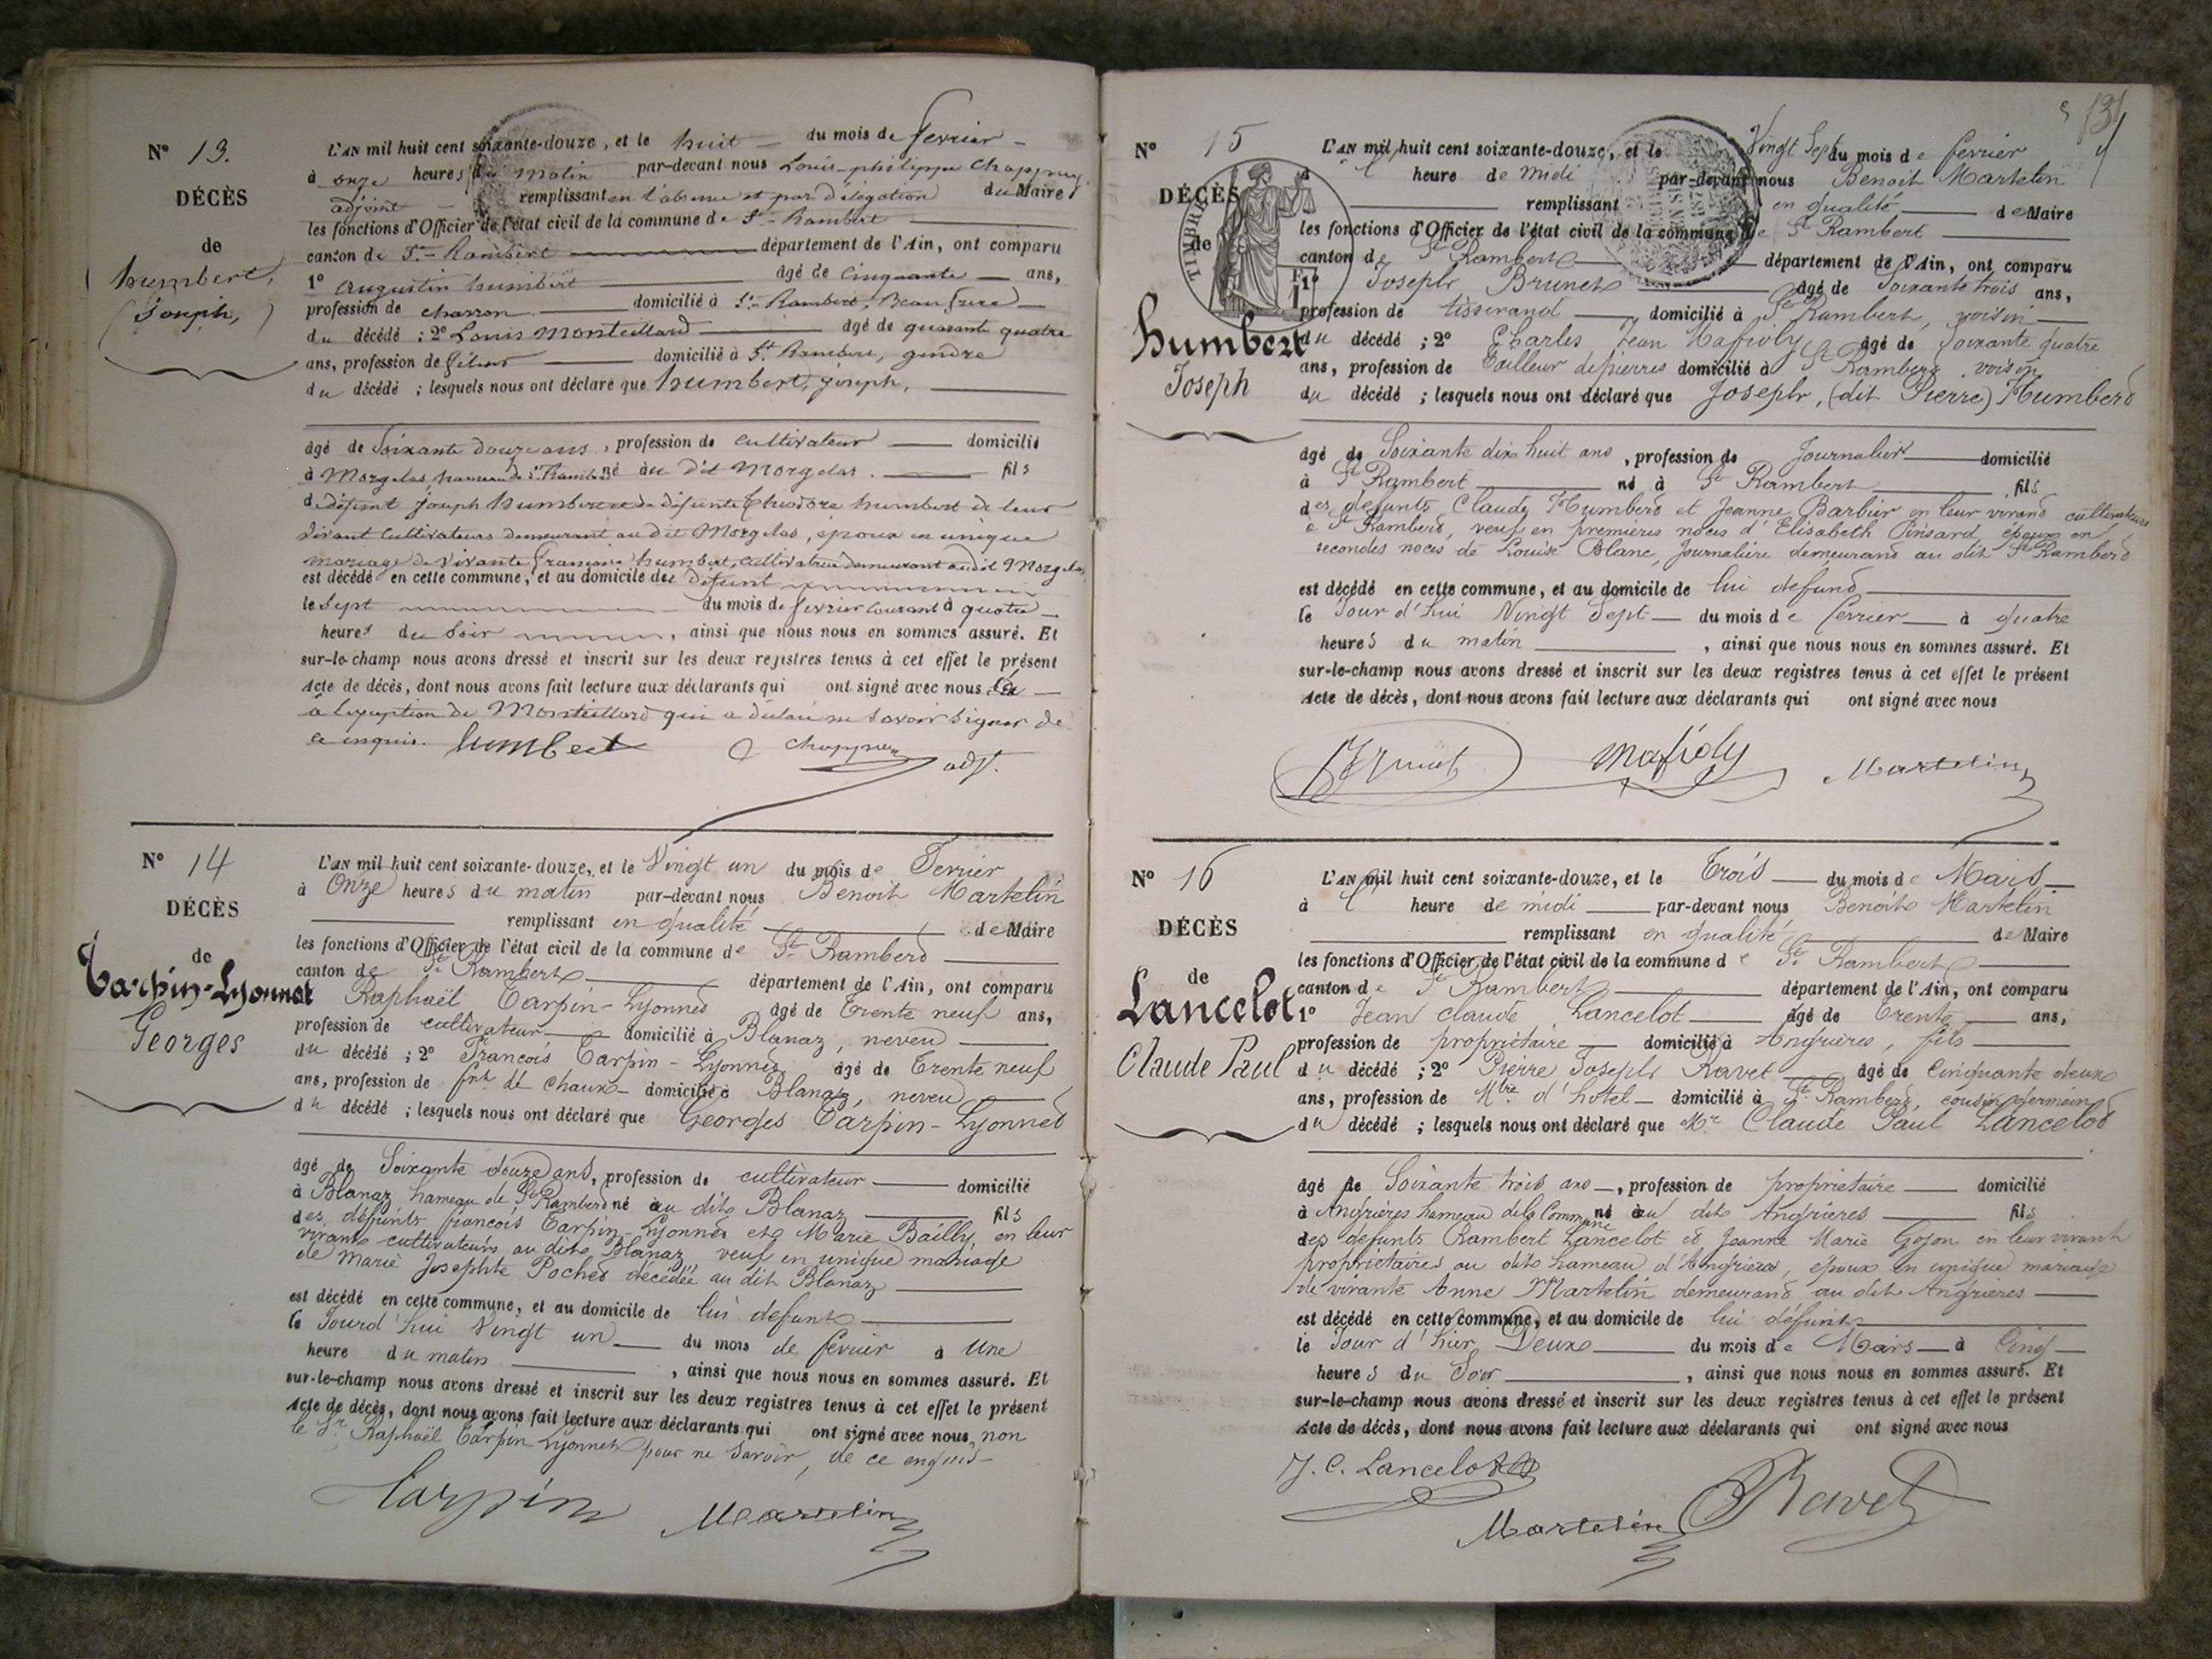 N° 13.
DÉCÈS
de
humbert,
(Joseph,)
L'AN mil huit cent soixante-douze, et le huit du mois de fevrier
à onze heures du matin par-devant nous Louis-philippe Chappuy
adjoint remplissant en l'absence et par délégation du Maire
les fonctions d'Officier de l'état civil de la commune de St-Rambert
canton de St-Rambert département de l'Ain, ont comparu
1° augustin humbert âgé de Cinquante ans,
profession de charron domicilié à St-Rambert, Beau frere
du décédé ; 2° Louis Monteillard âgé de quarante quatre
ans, profession de fileur domicilié à St Rambert, gendre
du décédé ; lesquels nous ont déclaré que humbert, joseph,
âgé de Soixante douze ans, profession de cultivateur domicilié
à Morgelas, hameau de St Rambert né au dit Morgelas. fils
de défunt joseph humbert et de défunte Théodore humbert de leur
vivant cultivateurs demeurant au dit Morgelas, époux en unique
mariage de vivante françoise humbert, cultivatrice demeurant au dit Morgelas,
est décédé en cette commune, et au domicile du Défunt
le Sept du mois de fevrier courant à quatre
heures du soir , ainsi que nous nous en sommes assuré. Et
sur-le-champ nous avons dressé et inscrit sur les deux registres tenus à cet effet le présent
Acte de décès, dont nous avons fait lecture aux déclarants qui ont signé avec nous
à l'exception de Monteillard qui a déclaré ne savoir signer de
ce enquis. humbert Chappuy adjt.
N° 14
DÉCÈS
de
Tarpin-Lyonnet
Georges
L'AN mil huit cent soixante-douze, et le Vingt un du mois de Fevrier
à Onze heures du matin par-devant nous Benoit Martelin
remplissant en qualité de Maire
les fonctions d'Officier de l'état civil de la commune de St Rambert
canton de St Rambert département de l'Ain, ont comparu
Raphaël Tarpin-Lyonnet âgé de Trente neuf ans,
profession de cultivateur domicilié à Blanaz, neveu
du décédé ; 2° François Tarpin-Lyonnet âgé de Trente neuf
ans, profession de fnt de chaux domicilié à Blanaz, neveu
du décédé ; lesquels nous ont déclaré que Georges Tarpin-Lyonnet
âgé de Soixante douze ans, profession de cultivateur domicilié
à Blanaz hameau de St Rambert né au dit Blanaz fils
des défunts françois Tarpin Lyonnet et Marie Bailly, en leur
vivant cultivateurs au dit Blanaz, veuf en unique mariage
de Marie Josephte Pochet décédée au dit Blanaz
est décédé en cette commune, et au domicile de lui defunt
le Jourd'hui Vingt un du mois de fevrier à Une
heure du matin , ainsi que nous nous en sommes assuré. Et
sur-le-champ nous avons dressé et inscrit sur les deux registres tenus à cet effet le présent
Acte de décès, dont nous avons fait lecture aux déclarants qui ont signé avec nous, non
le Sr Raphaël Tarpin Lyonnet pour ne savoir, de ce enquis
Tarpin Martelin
N° 15
DÉCÈS
de
Humbert
Joseph
TIMBRE
L'AN mil huit cent soixante-douze, et le Vingt Sept du mois de fevrier
à 1 heure de midi par-devant nous Benoit Martelin
remplissant en qualité de Maire
les fonctions d'Officier de l'état civil de la commune de St Rambert
canton de St Rambert département de l'Ain, ont comparu
1° Joseph Brunet âgé de Soixante trois ans,
profession de tisserand domicilié à St Rambert, voisin
du décédé ; 2° Charles Jean Mafioly âgé de Soixante quatre
ans, profession de tailleur de pierres domicilié à St Rambert, voisin
du décédé ; lesquels nous ont déclaré que Joseph, (dit Pierre) Humbert
âgé de Soixante dix huit ans, profession de Journalier domicilié
à St Rambert né à St Rambert, fils
des defunts Claude Humbert et Jeanne Barbier en leur vivant cultivateurs
à St Rambert, veuf en premieres noces d'Elisabeth Pinsard, époux en
secondes noces de Louise Blanc, Journalière demeurant au dit St Rambert
est décédé en cette commune, et au domicile de lui defunt
le Jour d'hui Vingt Sept du mois de fevrier à quatre
heures du matin , ainsi que nous nous en sommes assuré. Et
sur-le-champ nous avons dressé et inscrit sur les deux registres tenus à cet effet le présent
Acte de décès, dont nous avons fait lecture aux déclarants qui ont signé avec nous
Brunet Mafioly Martelin
N° 16
DÉCÈS
de
Lancelot
Claude Paul
L'AN mil huit cent soixante-douze, et le Trois du mois de Mars
à 1 heure de midi par-devant nous Benoit Martelin
remplissant en qualité de Maire
les fonctions d'Officier de l'état civil de la commune de St Rambert
canton de St Rambert département de l'Ain, ont comparu
1° Jean Claude Lancelot âgé de Trente ans,
profession de propriétaire domicilié à Angrières, fils
du décédé ; 2° Pierre Joseph Ravet âgé de Cinquante deux
ans, profession de Mtre d'hotel domicilié à St Rambert, cousin germain
du décédé ; lesquels nous ont déclaré que Mr Claude Paul Lancelot
âgé de Soixante trois ans, profession de propriétaire domicilié
à Angrières hameau de la Commune né au dit Angrières fils
des defunts Rambert Lancelot et Jeanne Marie Gojon en leur vivant
propriétaires au dit hameau d'Angrières, époux en unique mariage
de vivante Anne Martelin demeurant au dit Angrières
est décédé en cette commune, et au domicile de lui défunt
le Jour d'hier Deux du mois de Mars à Cinq
heures du Soir , ainsi que nous nous en sommes assuré. Et
sur-le-champ nous avons dressé et inscrit sur les deux registres tenus à cet effet le présent
Acte de décès, dont nous avons fait lecture aux déclarants qui ont signé avec nous
J. C. Lancelot
Martelin Ravet